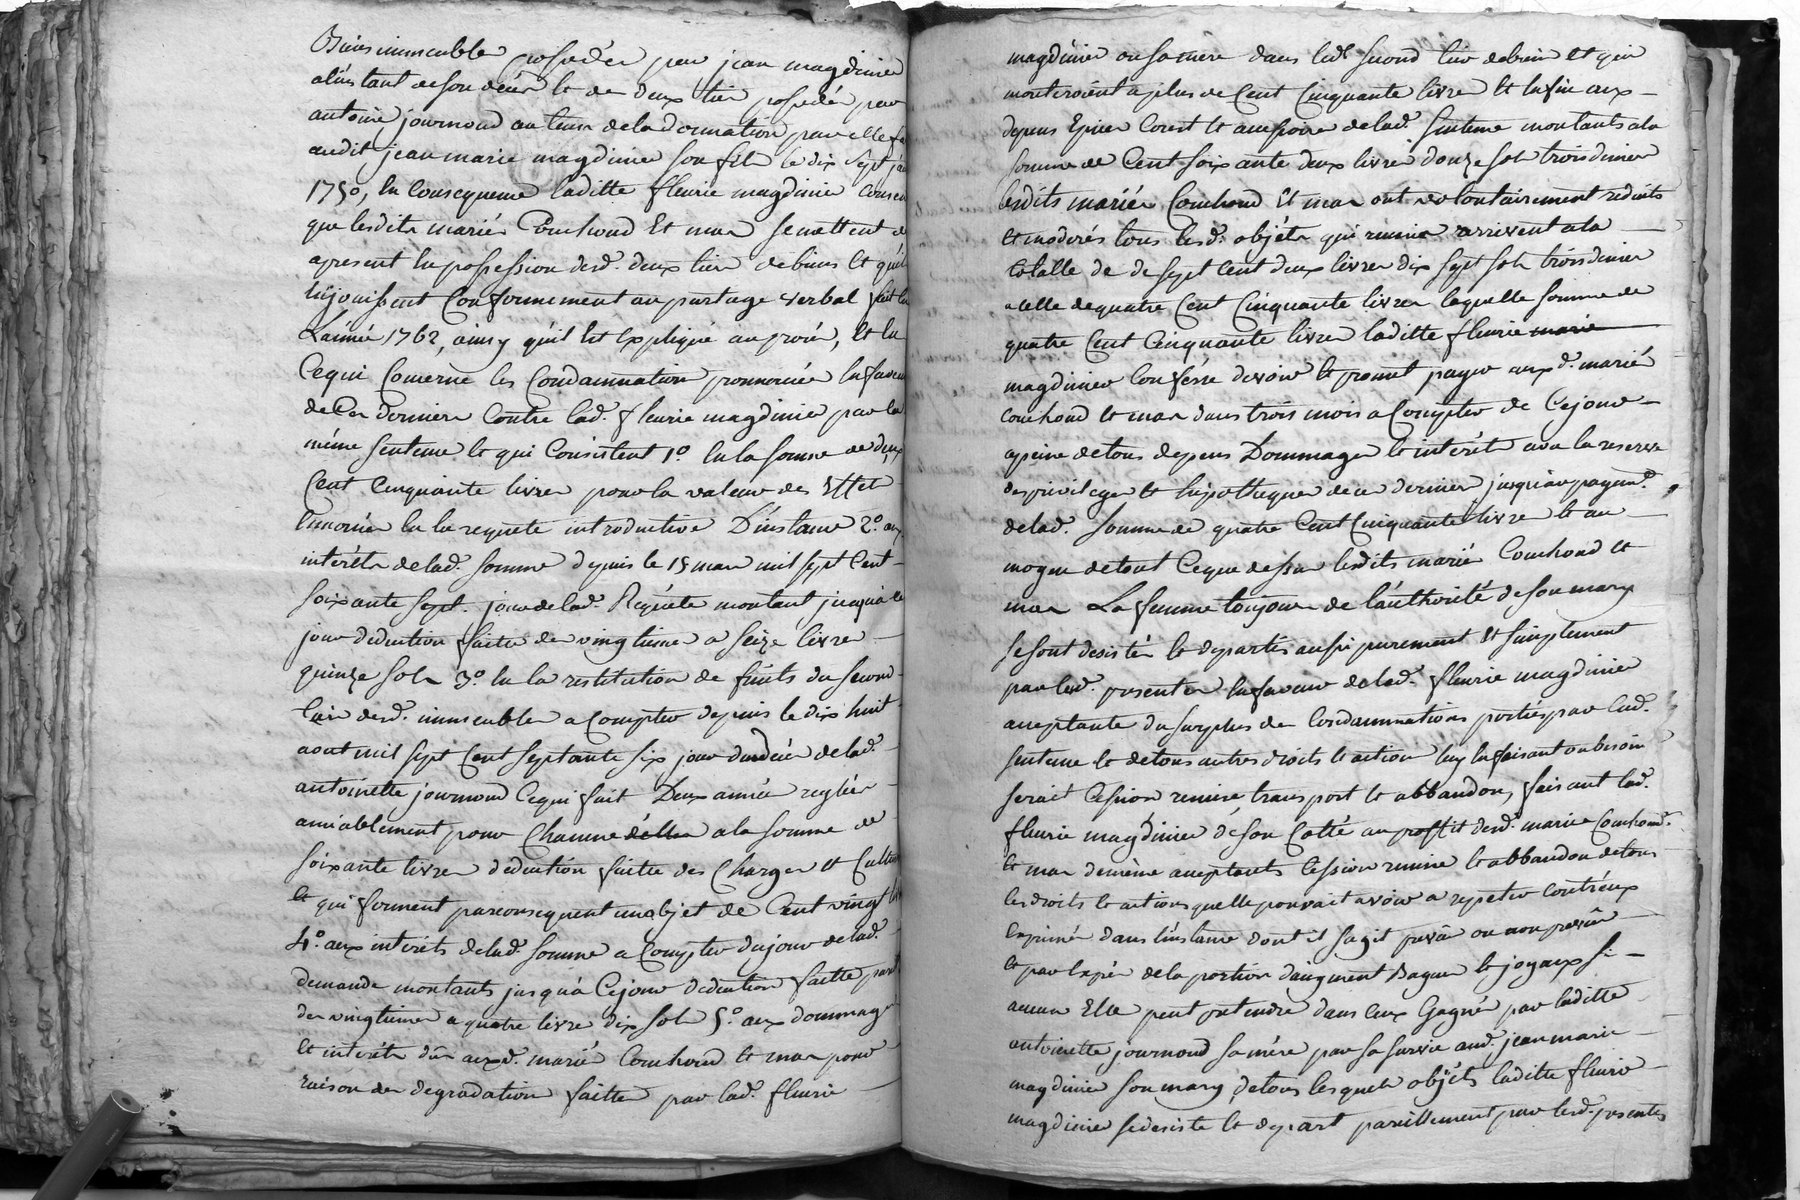 Biens immeuble possedés par jean magdinier
a l'instant de son décès et de deux tier possedés par
antoine journoud au teneur de la donnation par elle fa
audit jean marie magdinier son fils le dix sept jan
1750, En Consequence laditte fleurie magdinier consen
que lesdits mariés Couchoud Et mar se mettent de
apresent En possession desd. deux tier de biens Et qu'il
En jouissent Conformement au partage verbal fait En
L'année 1762, ainsy qu'il Est Expliqué au procès, Et En
Ce qui Concerne les Condamnation prononcées En faveur
de Ces derniers Contre lad. fleurie magdinier par la
même sentence Et qui Consistent 1º En la somme de deux
Cent Cinquante livres pour la valeur des Effet
Enoncés En la requete introductive D'instance 2º aux
interêts de lad. somme depuis le 15 mars mil sept Cent
soixante sept. jour de lad. Requête montant jusqu'a ce
jour deduction faitte des vingtieme a seize livres
quinze sols 3º En la restitution de fruits du second
tier desd. immeubles a Compter depuis le dix huit
aout mil sept Cent septante six jour du décès de lad.
antoinette journoud Ce qui fait Deux années reglées
amiablement pour Chacune d'elles a la somme de
soixante livres deduction faitte des Charges et Culture
Et qui forment par consequent un objet de Cent vingt livre
4º aux interêts de lad. somme a Compter du jour de lad.
demande montants jusqu'a Ce jour deduction faitte
des vingtiemes a quatre livre dix sols 5º aux dommages
Et interêts dûs auxd. mariés Couchoud et mar pour
raison des degradation faitte par lad. fleurie
magdinier ou sa mere dans led. second tier de bien Et qui
monteroient a plus de Cent Cinquante livres Et Enfin aux
depens Epices Coust Et accessoire de lad. sentence montants a la
somme de Cent soixante deux livres douze sols trois denier
lesdits mariés Couchoud Et mar ont volontairement reduits
Et moderés tous lesd. objêts qui reunis arrivent a la
totalle de de sept Cent deux livres dix sept sols trois denier
a celle de quatre Cent Cinquante livres laquelle somme de
quatre Cent Cinquante livres laditte fleurie marie
magdinier Confesse devoir Et promet payer auxd. marié
couchoud Et mar dans trois mois a Compter de Ce jour
a peine de tous depens Dommages Et interêt avec la reserve
des privileges Et hipotheques de ce dernier jusqu'au payem.
de lad. somme de quatre Cent Cinquante livres Et au
moyen de tout Ce que dessus lesdits mariés Couchoud et
mar La femme toujours de l'authorité de son mary
se sont desistés Et departis aussi purement Et simplement
par lesd. presentes En faveur de lad. fleurie magdinier
acceptante du surplus des Condamnations portées par lad.
sentence Et de tous autres droits Et action luy En faisant au besoin
serait Cession remise transport Et abbandon, faisant lad.
fleurie magdinier de son Cotté au proffit desd. mariés Couchoud.
Et mar de même acceptants Cession remise Et abbandon de tous
les droits Et actions qu'elle pouvait avoir a repeter contr'eux
Exprimés dans l'instance dont il s'agit prevû ou non prevûs
Et par Exprès de la portion d'augment Bague Et joyaux si
aucun Elle peut pretendre dans Ceux Gagnés par laditte
antoinette journoud sa mére par sa survie aud. jean marie
magdinier son mary, de tous lesquels objêts laditte fleurie
magdinier se desiste Et depart pareillement par lesd. presentes